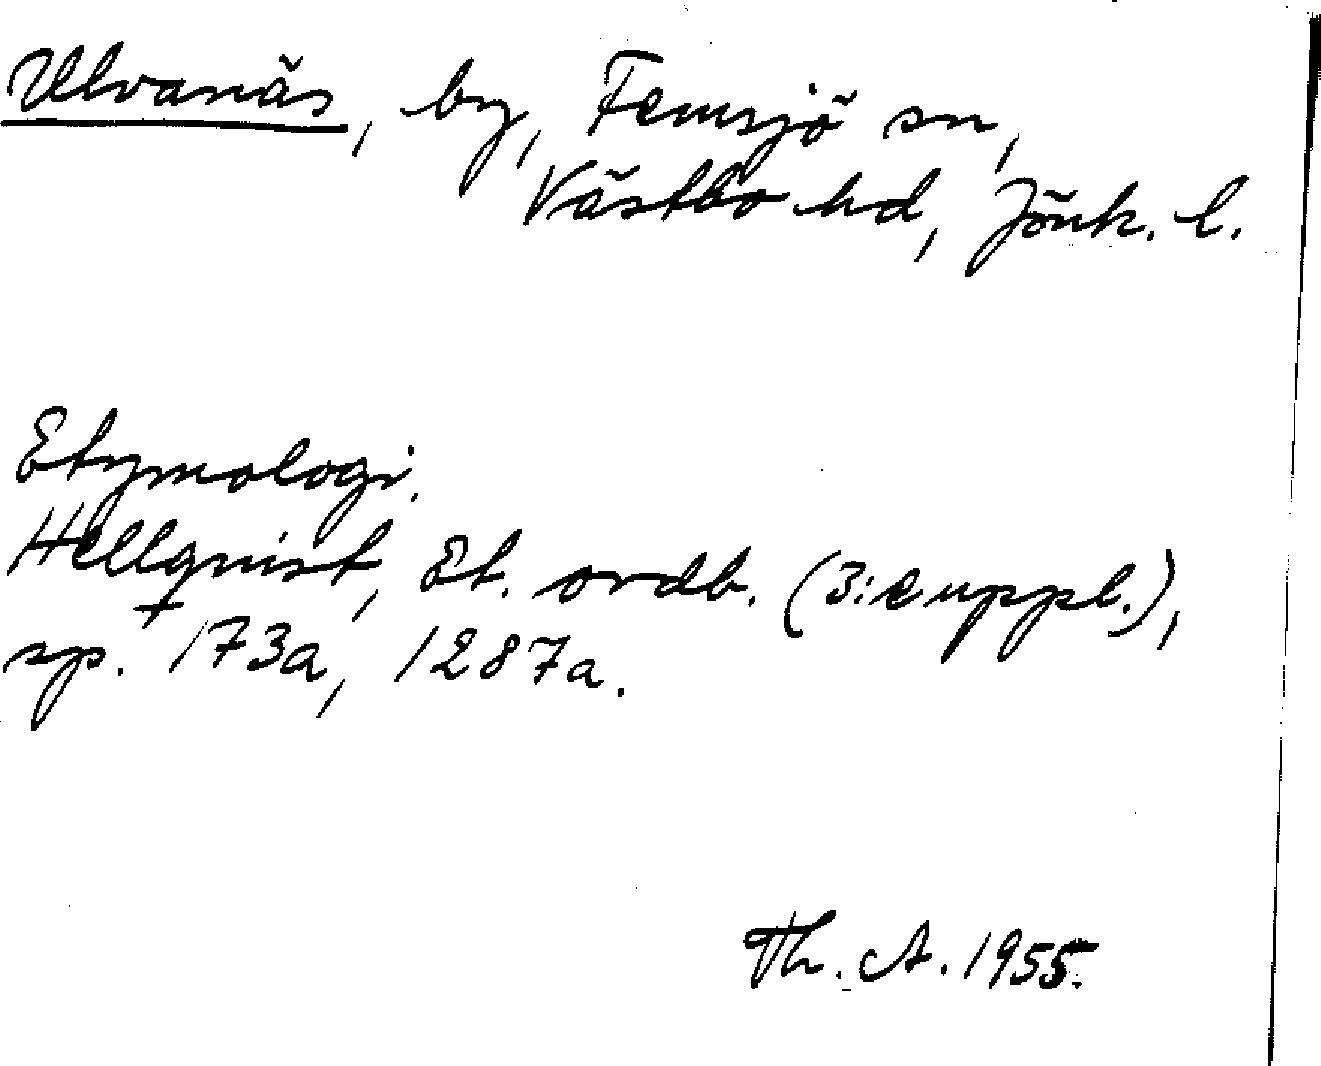 Ulvanäs, by, Femsjö sn,
Västbo hd, Jönk. l.
Etymologi.
Hellquist, Et. ordb. (3:e uppl.),
sp. 173a, 1287a.
Th. A. 1955.